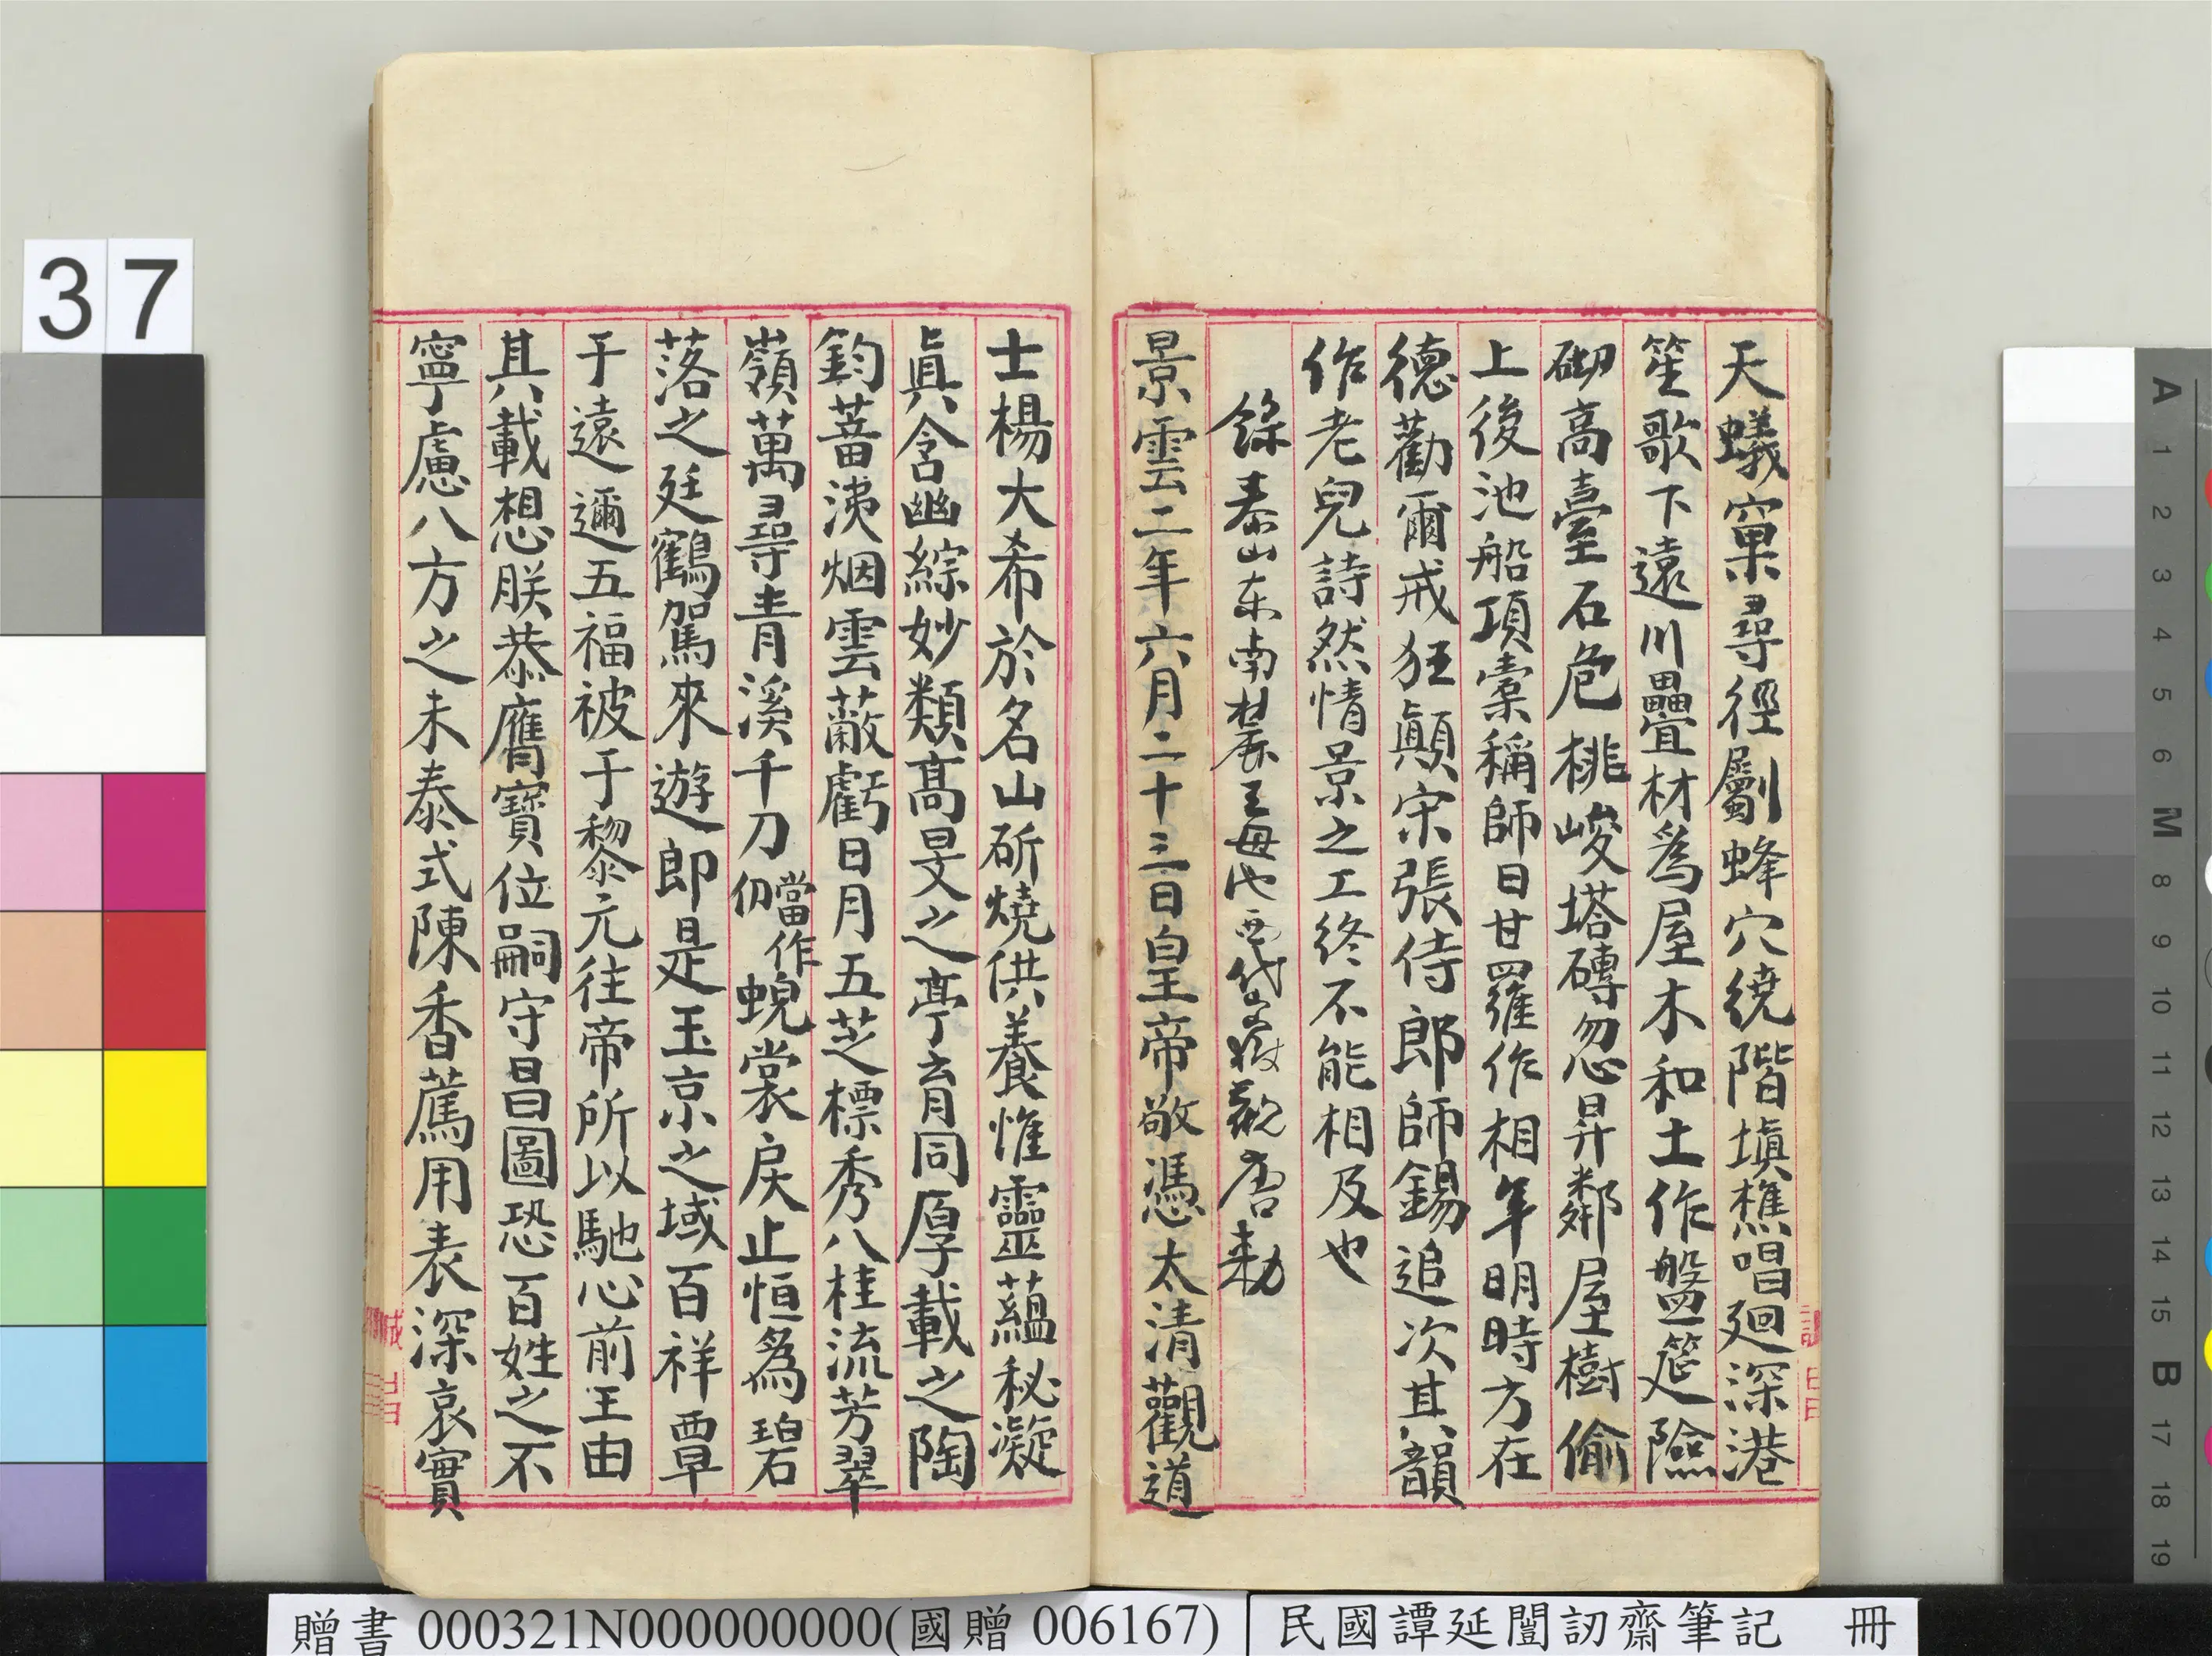 天蟻窠尋徑劚蜂穴繞階塡樵唱廻深港
笙歌下遠川疊材爲屋木和土作盤筵險
砌高臺石危桃峻塔磚忽昇鄰屋樹偷
上後池船項橐稱師日甘羅作相年明時方在
德勸爾戒狂顚宋張侍郎師錫追次其韻
作老兒詩然情景之工終不能相及也
錄泰山東南麓王母池西岱嶽觀唐勅
景雲二年六月二十三日皇帝敬憑太清觀道
士楊大希於名山斫燒供養惟靈蘊秘凝
眞含幽綜妙類高旻之亭育同厚載之陶
鈞蓄洟烟雲蔽虧日月五芝標秀八桂流芳翠
嶺萬尋青溪千刀當作仞蜺裳戾止恒爲碧
落之廷鶴駕來遊郎是玉京之域百祥覃
于遠邇五福被于黎元往帝所以馳心前王由
其載想朕恭膺寶位嗣守昌圖恐百姓之不
寧慮八方之未泰式陳香薦用表深哀實
37
A 1 2 3 4 5 6 M 8 9 10 11 12 13 14 15 B 17 18 19
贈書 000321N000000000(國贈 006167)
民國譚延闓訒齋筆記 冊